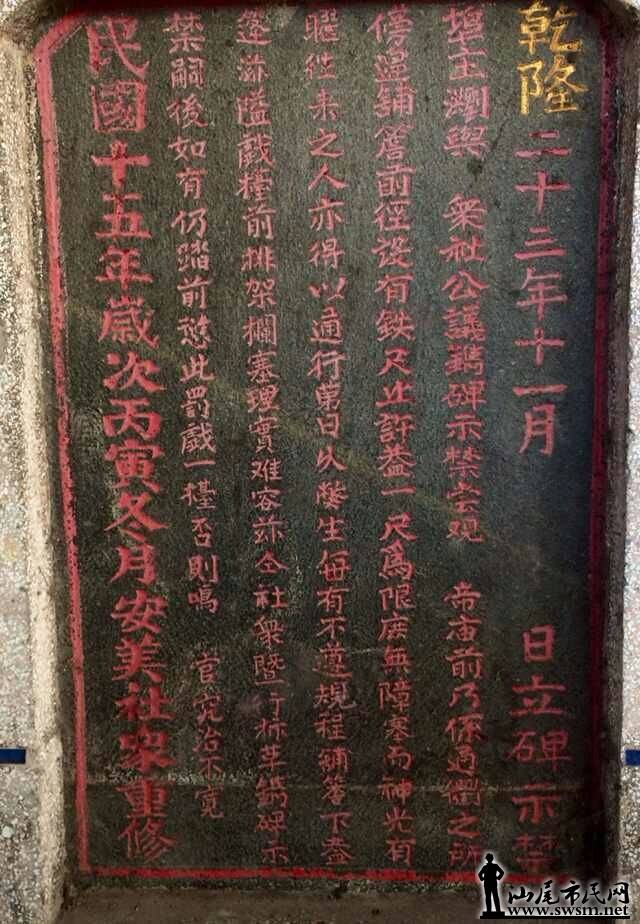 乾隆二十三年十一月 日立碑示禁
埠主瀏與 衆社公議鵝碑示禁宏观 帝庙前乃係通衢之所
傍竖铺簷前径設有鉄尺止許盖一尺爲限庶無障塞而神光有
曜往来之人亦得以通行第日久弊生每有不遵規程铺簷下盡
簷茶隘戯檯前排架欄塞理實难容兹仝社衆暨一于标革鵝碑示
禁嗣後如有仍踏前愆此罰戯一檯否則鳴 官究治不寛
民國十五年歲次丙寅冬月安美社众重修
汕尾市民网
www.swsm.net